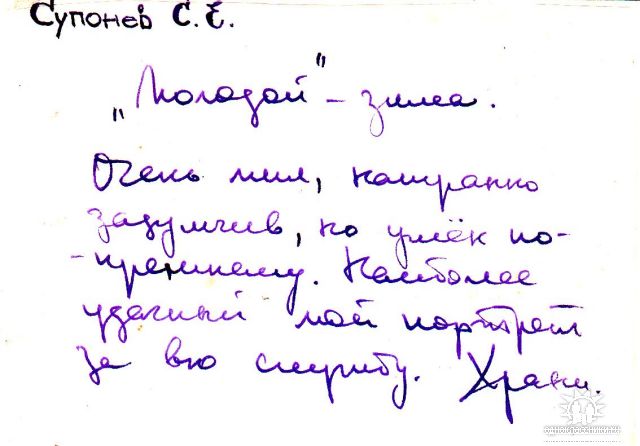 Супонев С. Е.
„Молодой" – зима.
Очень мил, наигранно
задумчив, но умён по-
-прежнему. Наиболее
удачный мой портрет
за всю службу. Храни.
одноклассники.ru